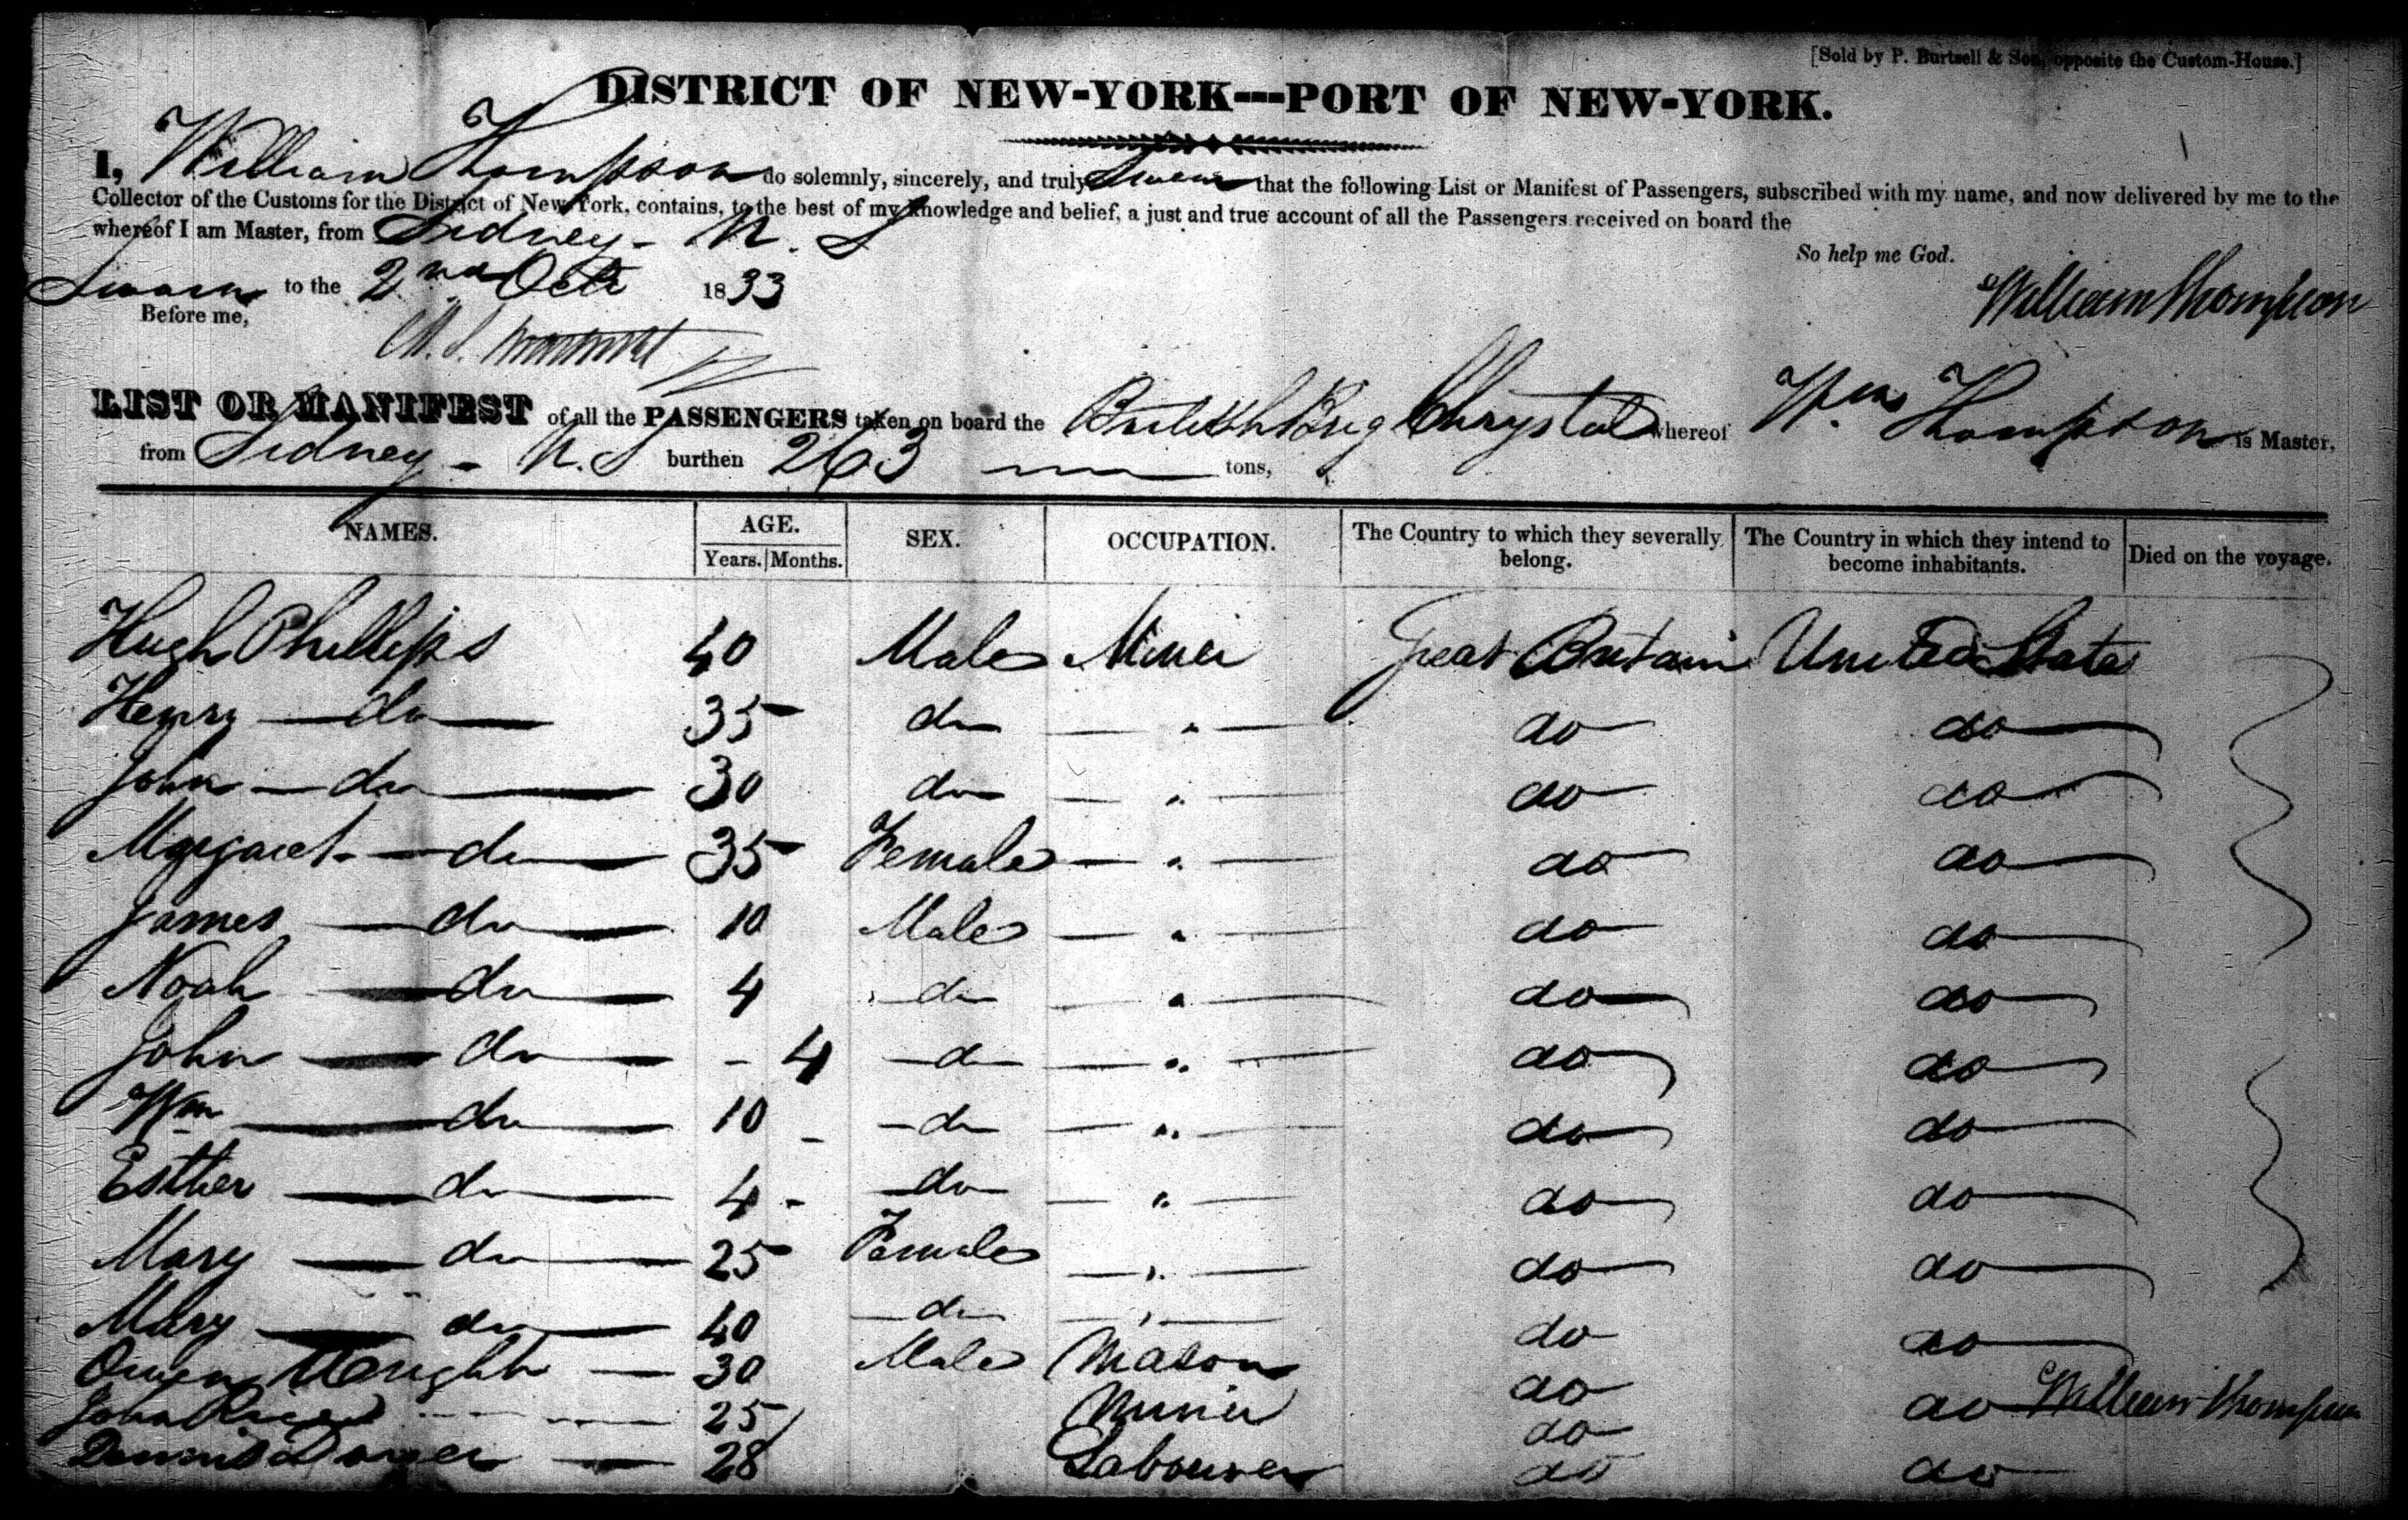 [Sold by P. Burtsell & Son, opposite the Custom-House.]
DISTRICT OF NEW-YORK---PORT OF NEW-YORK.
I, William Thompson do solemnly, sincerely, and truly Swear that the following List or Manifest of Passengers, subscribed with my name, and now delivered by me to the
Collector of the Customs for the District of New York, contains, to the best of my knowledge and belief, a just and true account of all the Passengers received on board the
whereof I am Master, from Sidney - N. S
So help me God.
Sworn to the 2nd Octr 1833
William Thompson
Before me,
LIST OR MANIFEST of all the PASSENGERS taken on board the British Brig Chrystal whereof Wm Thompson is Master,
from Sidney - N. S burthen 263 tons,
NAMES. AGE. SEX. OCCUPATION. The Country to which they severally belong. The Country in which they intend to become inhabitants. Died on the voyage.
Years. Months.
Hugh Phillips 40 Male Miner Great Britain United States
Henry do 35 do " do do
John do 30 do " do do
Margaret do 35 Female " do do
James do 10 Male " do do
Noah do 4 do " do do
John do - 4 do " do do
Wm do 10 - do " do do
Esther do 4 - do " do do
Mary do 25 Female " do do
Mary do 40 do " do do
Owen 30 Male Mason do do William Thompson
John 25 Miner do
Dennis 28 Labourer do do